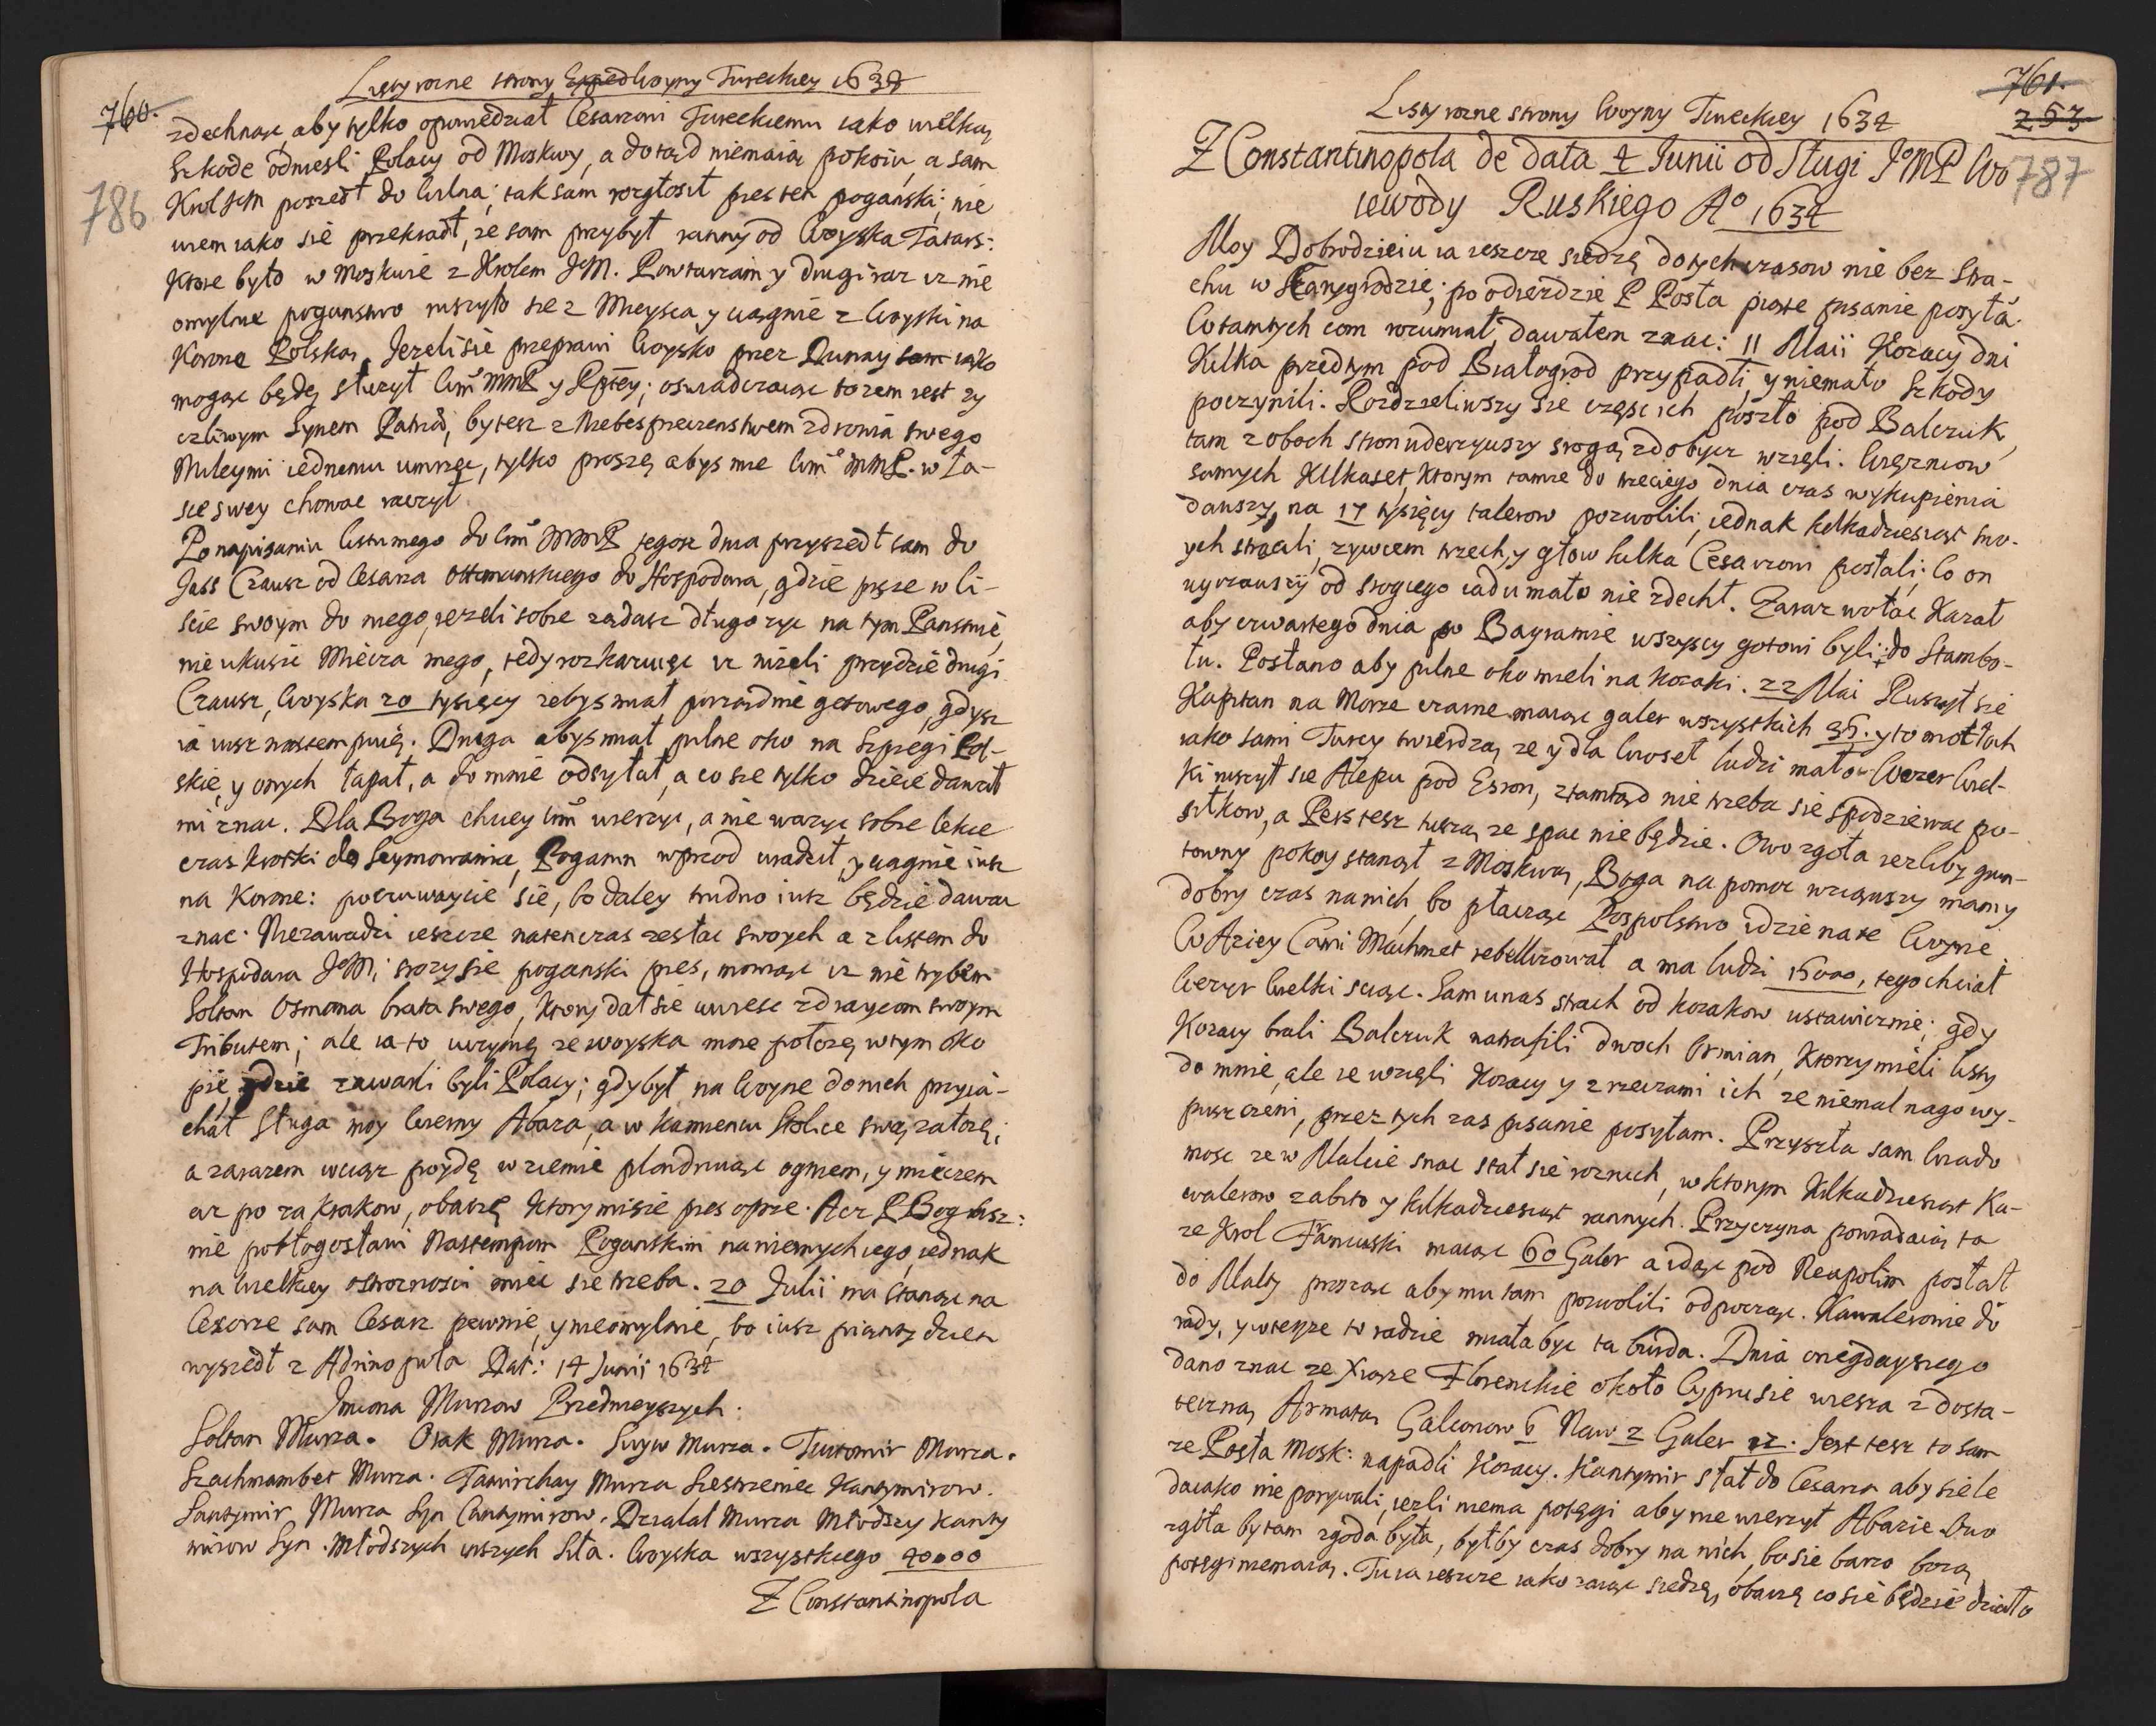 Listy rozne strony Exped Woyny Tureckiey 1634
760.
786
zdechnąc, aby tylko opowiedział Cesarzowi Tureckiemu iako wielką
szkode odniesli Polacy od Moskwy, a dotąd niemaią pokoiu, a sam
Krol JM poszedł do Wilna; tak sam rozgłosił pies ten poganski; nie
wiem iako sie przekradł, ze sam przybył ranny od Woyska Tatars:
Ktore było w Moskwie z Krolem JM. Powtarzam y drugi raz iz nie
omylne poganstwo ruszyło sie z Mieysca y ciągnie z Woyski na
Korone Polską. Jezeli sie przeprawi Woysko przez Dunay iako
mogąc będę słuzył Wm MMP y Rptey; oswiadczaiąc to zem iest zy
czliwym Synem Patriæ, bytesz z Niebespieczenstwem zdrowia swego
Mileymi iednemu umrzec, tylko proszę abys mie Wm MMP. w ła-
sce swey chowac raczył
Po napisaniu listu mego do Wm MMP tegosz dnia przyszedł sam do
Jass Czausz od Cesarza Ottomanskiego do Hospodara, gdzie pisze w li-
scie swoym do niego, iezeli sobie ządasz długo zyc na tym Panstwie,
nie ukusic Miecza mego, tedy rozkazuięc iz nizeli przydzie drugi
Czausz, Woyska 20 tysięcy zebys miał porządnie gotowego, gdysz
ia iusz nastempuię. Druga abys miał pilne oko na Szpiegi Pol-
skie, y onych łapał, a do mnie odsyłał, a co sie tylko dzieie dawał
mi znac. Dla Boga chciey Wm wierzyc, a nie wazyc sobie lekce
czas krotki do Seymowania, Poganin wprzod uradził, y ciągnie iusz
na Korone: poczuwaycie sie, bo daley trudno iusz będzie dawac
znac. Niezawadzi ieszcze natenczas zesłac swoych a z listem do
Hospodara JM; srozy sie poganski pies, mowiąc iz nie trybem
Soltan Osmana brata swego, Ktory dał sie uwiesc zdraycom swoym
Tributem; ale ia to uczynię ze woyska moie połozę w tym oko
pie, gdzie zawarli byli Polacy; gdy był na Woyne do nich przyia-
chał Sługa moy wierny Abaza, a w Kamiencu Stolice swą załozę;
a zarazem wciąz poydę w ziemie plondruiąc ogniem, y mieczem
az po za Krakow, obaczę Ktory mi sie pies oprze. Acz P Bog lusz:
nie pobłogosławi Nastempom Poganskim na niemych iego, iednak
na wielkiey ostroznosci miec sie trzeba. 20 Julii ma stanąc na
Cesorze sam Cesarz pewnie, y nieomylnie, bo iusz piąnty dzien
wyszedł z Adrinopola Dat: 14 Junii 1634
Imiona Murzow Przednieyszych.
Soltan Murza. Orak Murza. Murza. Murza.
Szachmambet Murza. Murza Siestrzeniec Kantymirow.
Murza Syn Cantymirow. Murza Młodszy Kanty
mirow Syn. Młodszych inszych siła. Woyska wszystkiego 40000
Z Constantinopola
761.
Listy rozne strony Woyny Tureckiey 1634
253
787
Z Constantinopola de data 4 Junii od Sługi JoMP Wo
iewody Ruskiego Ao 1634
Moy Dobrodzieiu ia ieszcze siedzę dotychczasow nie bez Stra-
chu w Stanygrodzie; po odiezdzie P Posła piąte pisanie posyłã.
W tamtych com rozumiał, dawałem znac: 11 Maii Kozacy dni
Kilka przedtym pod Białogrod przypadli, y niemało szkody
poczynili. Rozdzieliwszy sie częsc ich poszło pod Balczuk,
tam z oboch stron uderzywszy srogą zdobycz wzięli. Więzniow
samych Kilkaset, Ktorym tamze do trzeciego dnia czas wykupienia
dawszy, na 17 tysięcy talerow pozwolili, iednak kilkadziesiąt swo-
ych stracili, zywcem trzech, y głow kilka Cesarzowi posłali; Co on
uyrzawszy od srogiego iadu mało nie zdechł. Zaraz wołac Kazał
aby czwartego dnia po Bayramie wszyscy gotowi byli: do Stambo-
łu. Posłano aby pilne oko mieli na kozaki. 22 Mai Ruszył sie
Kapitan na Morze czarne maiąc galer wszystkich 35. y to
iako sami Turcy twierdzą, ze y dla Wioseł ludzi mało. Wezer Wiel-
ki ruszył sie Alepu pod Esron, ztamtąd nie trzeba sie spodziewac po-
siłkow, a Pers tesz tuszą ze spac nie będzie. Owo zgoła iezliby grun-
towny pokoy stanął z Moskwą, Boga na pomoc wziąwszy mamy
dobry czas na nich, bo płacząc Pospolstwo idzie na te Woyne
W Aziey Cawi Machmet rebellizował a ma ludzi 16000, tego chciał
Wezyr Wielki sciąc. Sam u nas strach od kozakow ustawicznie; gdy
Kozacy brali Balczuk natrafili dwoch Ormian, Ktorzy mieli listy
do mnie, ale ie wzięli Kozacy y z rzeczami ich ze niemal nago wy-
puszczeni, przez tych zas pisanie posyłam. Przyszła sam Wiado
mosc ze w Malcie snac stał sie rozruch, w ktorym Kilkadziesiąt Ka-
walerow zabito y kilkadziesiąt rannych. Przyczyna powiadaią ta
ze Krol Francuski maiąc 60 Galer a idąc pod Neapolim posłał
do Malty prosząc aby mu tam pozwolili odpocząc. Kawalerowie do
rady, y w teyze to radzie miała byc ta burda. Dnia onegdayszego
dano znac ze Xiąze Florenckie około Cyprusie wiesza z dosta-
teczną Armatą Galeonow 6 Naw 2 Galer 12. Jest tesz to sam
ze Posła Mosk: napadli Kozacy. Kantymir słał do Cesarza aby siele
daiako nie porywali, iezli niema potęgi aby nie wierzył Abazie. Owo
zgoła by tam zgoda była, byłby czas dobry na nich, bo sie barzo boią
potęgi niemaią. Tu ia ieszcze iako zaiąc siedzę, obaczę co sie będzie działo